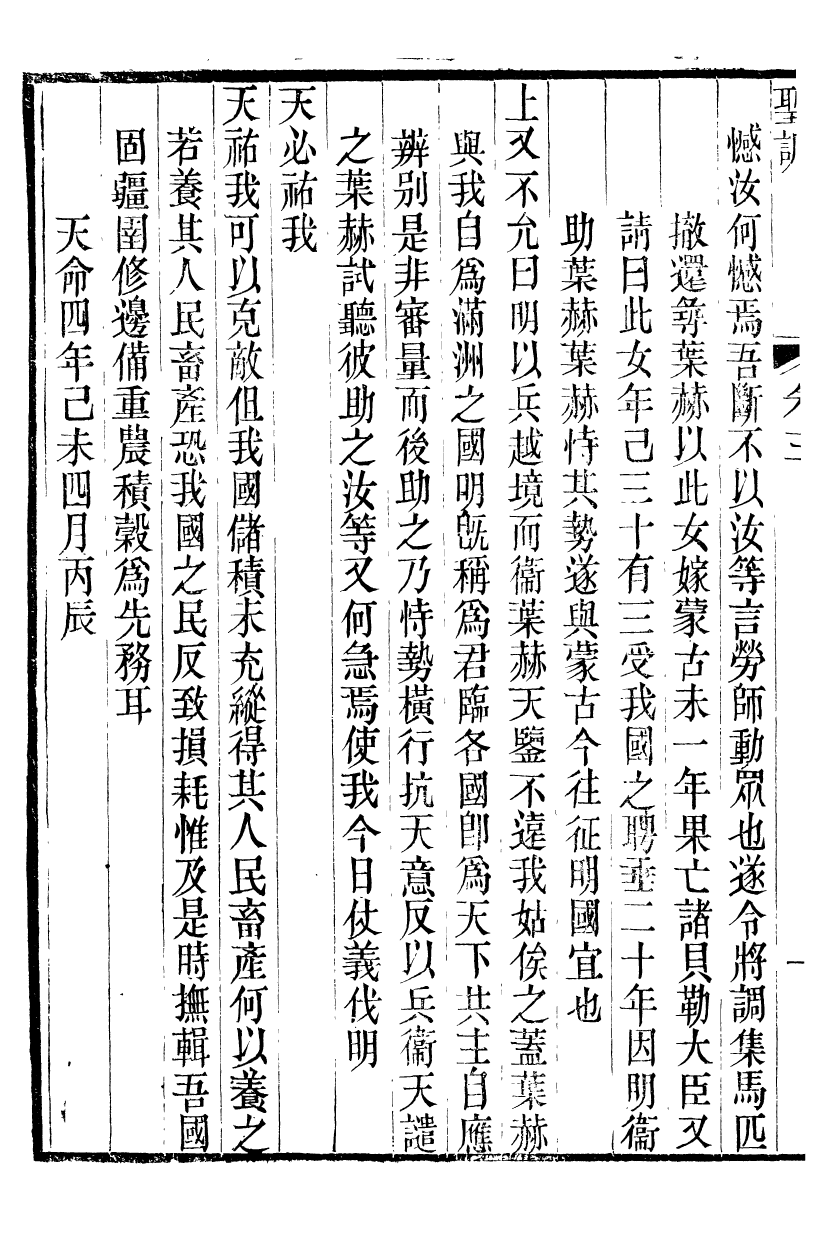 聖訓 卷三 一
憾汝何憾焉吾斷不以汝等言勞師動眾也遂令將調集馬匹
撤還尋葉赫以此女嫁蒙古未一年果亡諸貝勒大臣又
請曰此女年已三十有三受我國之聘垂二十年因明衞
助葉赫葉赫恃其勢遂與蒙古今往征明國宜也
上又不允曰明以兵越境而衞葉赫天鑒不遠我姑俟之蓋葉赫
與我自爲滿洲之國明旣稱爲君臨各國卽爲天下共主自應
辨別是非審量而後助之乃恃勢橫行抗天意反以兵衞天譴
之葉赫試聽彼助之汝等又何急焉使我今日仗義伐明
天必祐我
天祐我可以克敵但我國儲積未充縱得其人民畜產何以養之
若養其人民畜產恐我國之民反致損耗惟及是時撫輯吾國
固疆圉修邊備重農積穀爲先務耳
天命四年己未四月丙辰